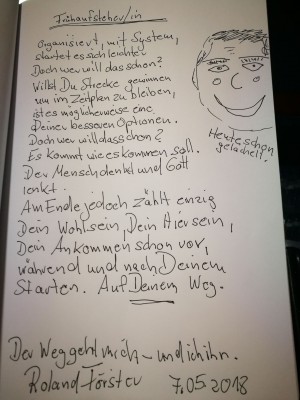 Frühaufsteher/in
Organisiert, mit System,
startet es sich leichter
Doch wer will das schon?
Willst Du Strecke gewinnen
um im Zeitplan zu bleiben,
ist es möglicherweise eine
Deiner besseren Optionen.
Doch wer will das schon?
Es kommt wie es kommen soll.
Der Mensch denkt und Gott
lenkt.
Am Ende jedoch zählt einzig
Dein Wohlsein, Dein Hiersein,
Dein Ankommen schon vor,
während und nach Deinem
Starten. Auf Deinem Weg.
Heute schon
gelächelt?
Der Weg geht mich – und ich ihn.
Roland Förster 7.05.2018